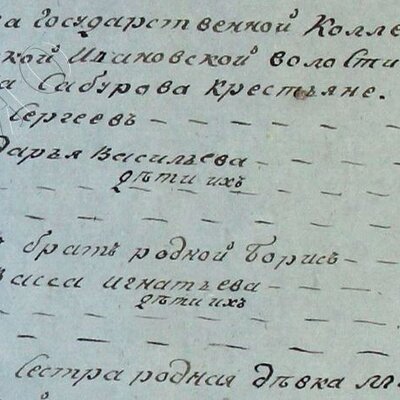 а государственной Колле
кой Ивановской волости
а Сабурова крестьяне.
Сергеевъ
дарья Васильева
дѣти ихъ
братъ родной Борисъ
васса игнатьева
дѣти ихъ
Сестра родная дѣвка Ма